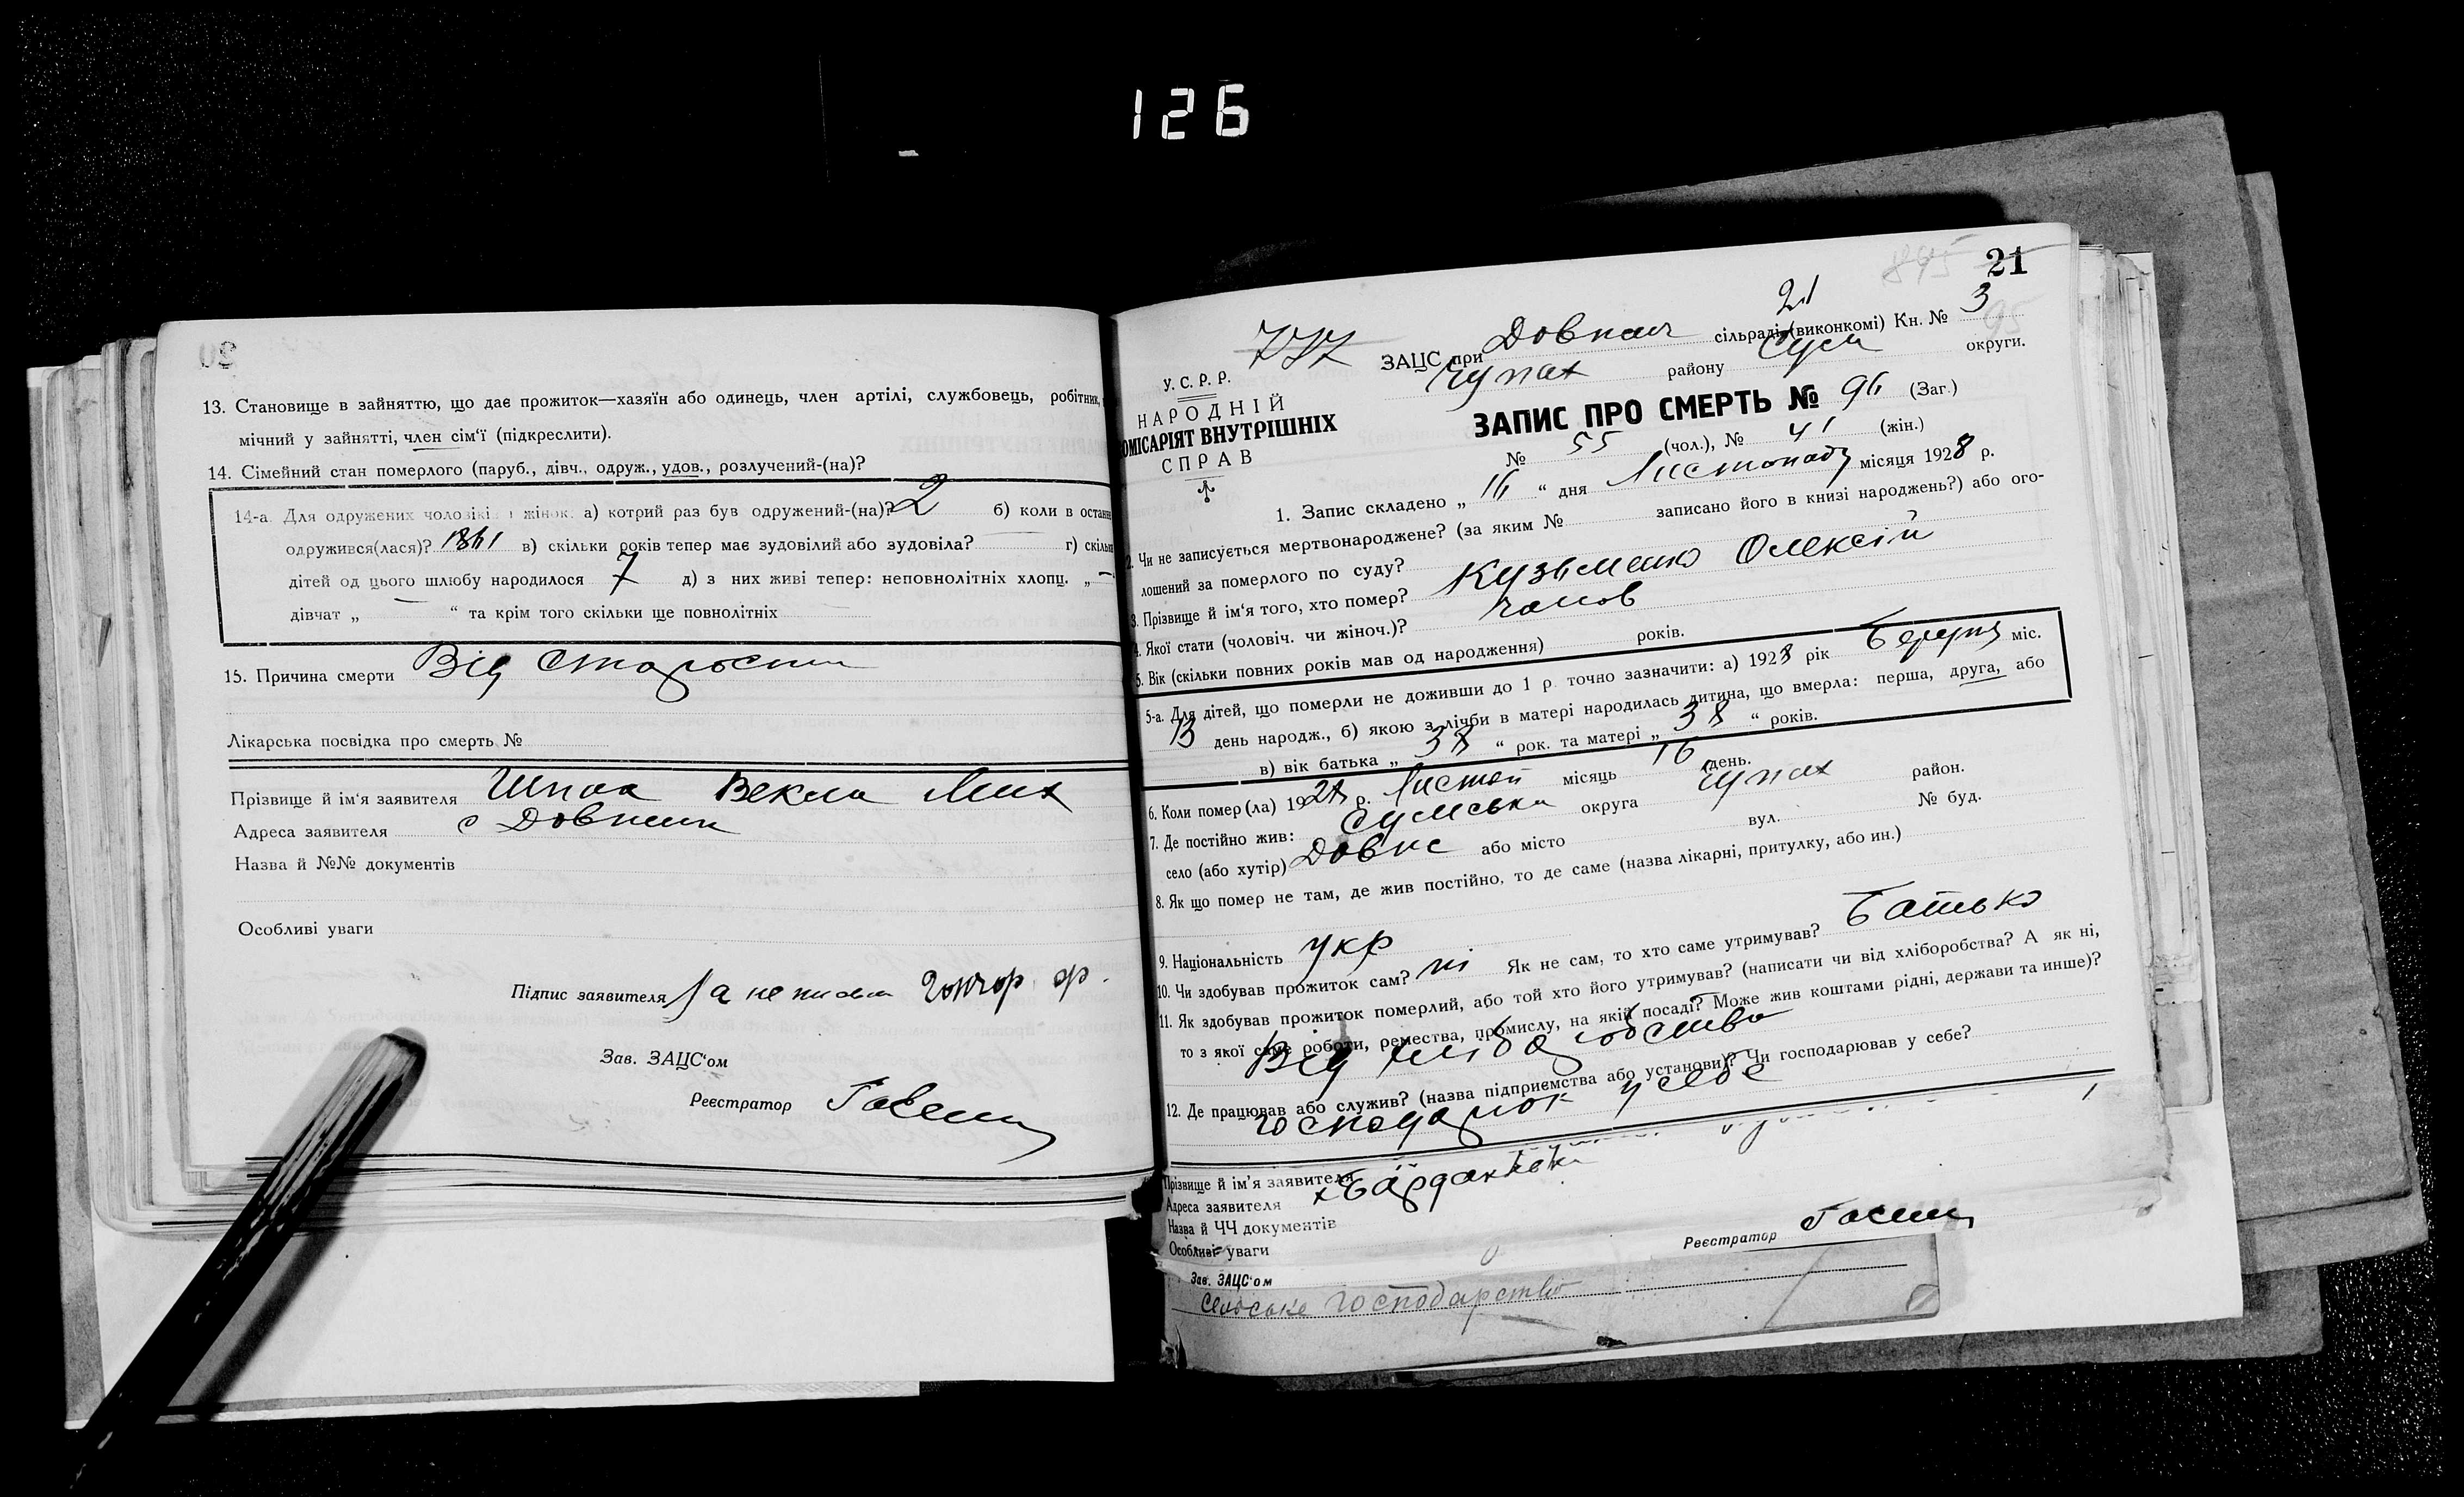 126
13. Становище в зайняттю, що дає прожиток—хазяїн або одинець, член артілі, службовець, робітник,
мічний у зайнятті, член сім'ї (підкреслити).
14. Сімейний стан померлого (паруб., дівч., одруж., удов., розлучений-(на)?
14-а. Для одружених чоловіків і жінок: а) котрий раз був одружений-(на)? 2 б) коли в останн
одружився(лася)? 1861 в) скільки років тепер має зудовілий або зудовіла? г) скільк
дітей од цього шлюбу народилося 7 д) з них живі тепер: неповнолітніх хлопц. „ —
дівчат „ — “ та крім того скільки ще повнолітніх —
15. Причина смерти Від старости
Лікарська посвідка про смерть №
Прізвище й ім'я заявителя Шпак Векла Мих
Адреса заявителя с Довжик
Назва й №№ документів
Особливі уваги
Підпис заявителя За неписьм Гончар
Зав. ЗАЦС'ом
Реєстратор
21
21
777 ЗАЦС при сільраді (виконкомі) Кн. № 3
Чупах району Сум округи.
У. С. Р. Р.
НАРОДНІЙ
ОМІСАРІЯТ ВНУТРІШНІХ
СПРАВ
ЗАПИС ПРО СМЕРТЬ № 96 (Заг.)
№ 55 (чол.), № 41 (жін.)
1. Запис складено „ 16 “ дня Листопаду місяця 1928 р.
2. Чи не записується мертвонароджене? (за яким № записано його в книзі народжень?) або ого-
лошений за померлого по суду?
3. Прізвище й ім'я того, хто помер? Кузьменко Олексій
4. Якої стати (чоловіч. чи жіноч.)? чолов
5. Вік (скільки повних років мав од народження) років.
5-а. Для дітей, що померли не доживши до 1 р. точно зазначити: а) 1928 рік Березня міс.
13 день народж., б) якою з лічби в матері народилась дитина, що вмерла: перша, друга, або
в) вік батька „ 38 “ рок. та матері „ 38 “ років.
6. Коли помер(ла) 1928 р. Листоп місяць 16 день.
7. Де постійно жив: Сумська округа Чупах район.
село (або хутір) Довж або місто вул. № буд.
8. Як що помер не там, де жив постійно, то де саме (назва лікарні, притулку, або ин.)
9. Національність Укр
10. Чи здобував прожиток сам? ні Як не сам, то хто саме утримував? Батько
11. Як здобував прожиток померлий, або той хто його утримував? (написати чи від хліборобства? А як ні,
то з якої саме роботи, ремества, промислу, на якій посаді? Може жив коштами рідні, держави та инше)?
Від хліборобства
12. Де працював або служив? (назва підприємства або установи)? Чи господарював у себе?
господарюк у себе
Прізвище й ім'я заявителя
Адреса заявителя
Назва й ЧЧ документів
Особливі уваги
Реєстратор
Зав. ЗАЦС'ом
сельське господарство